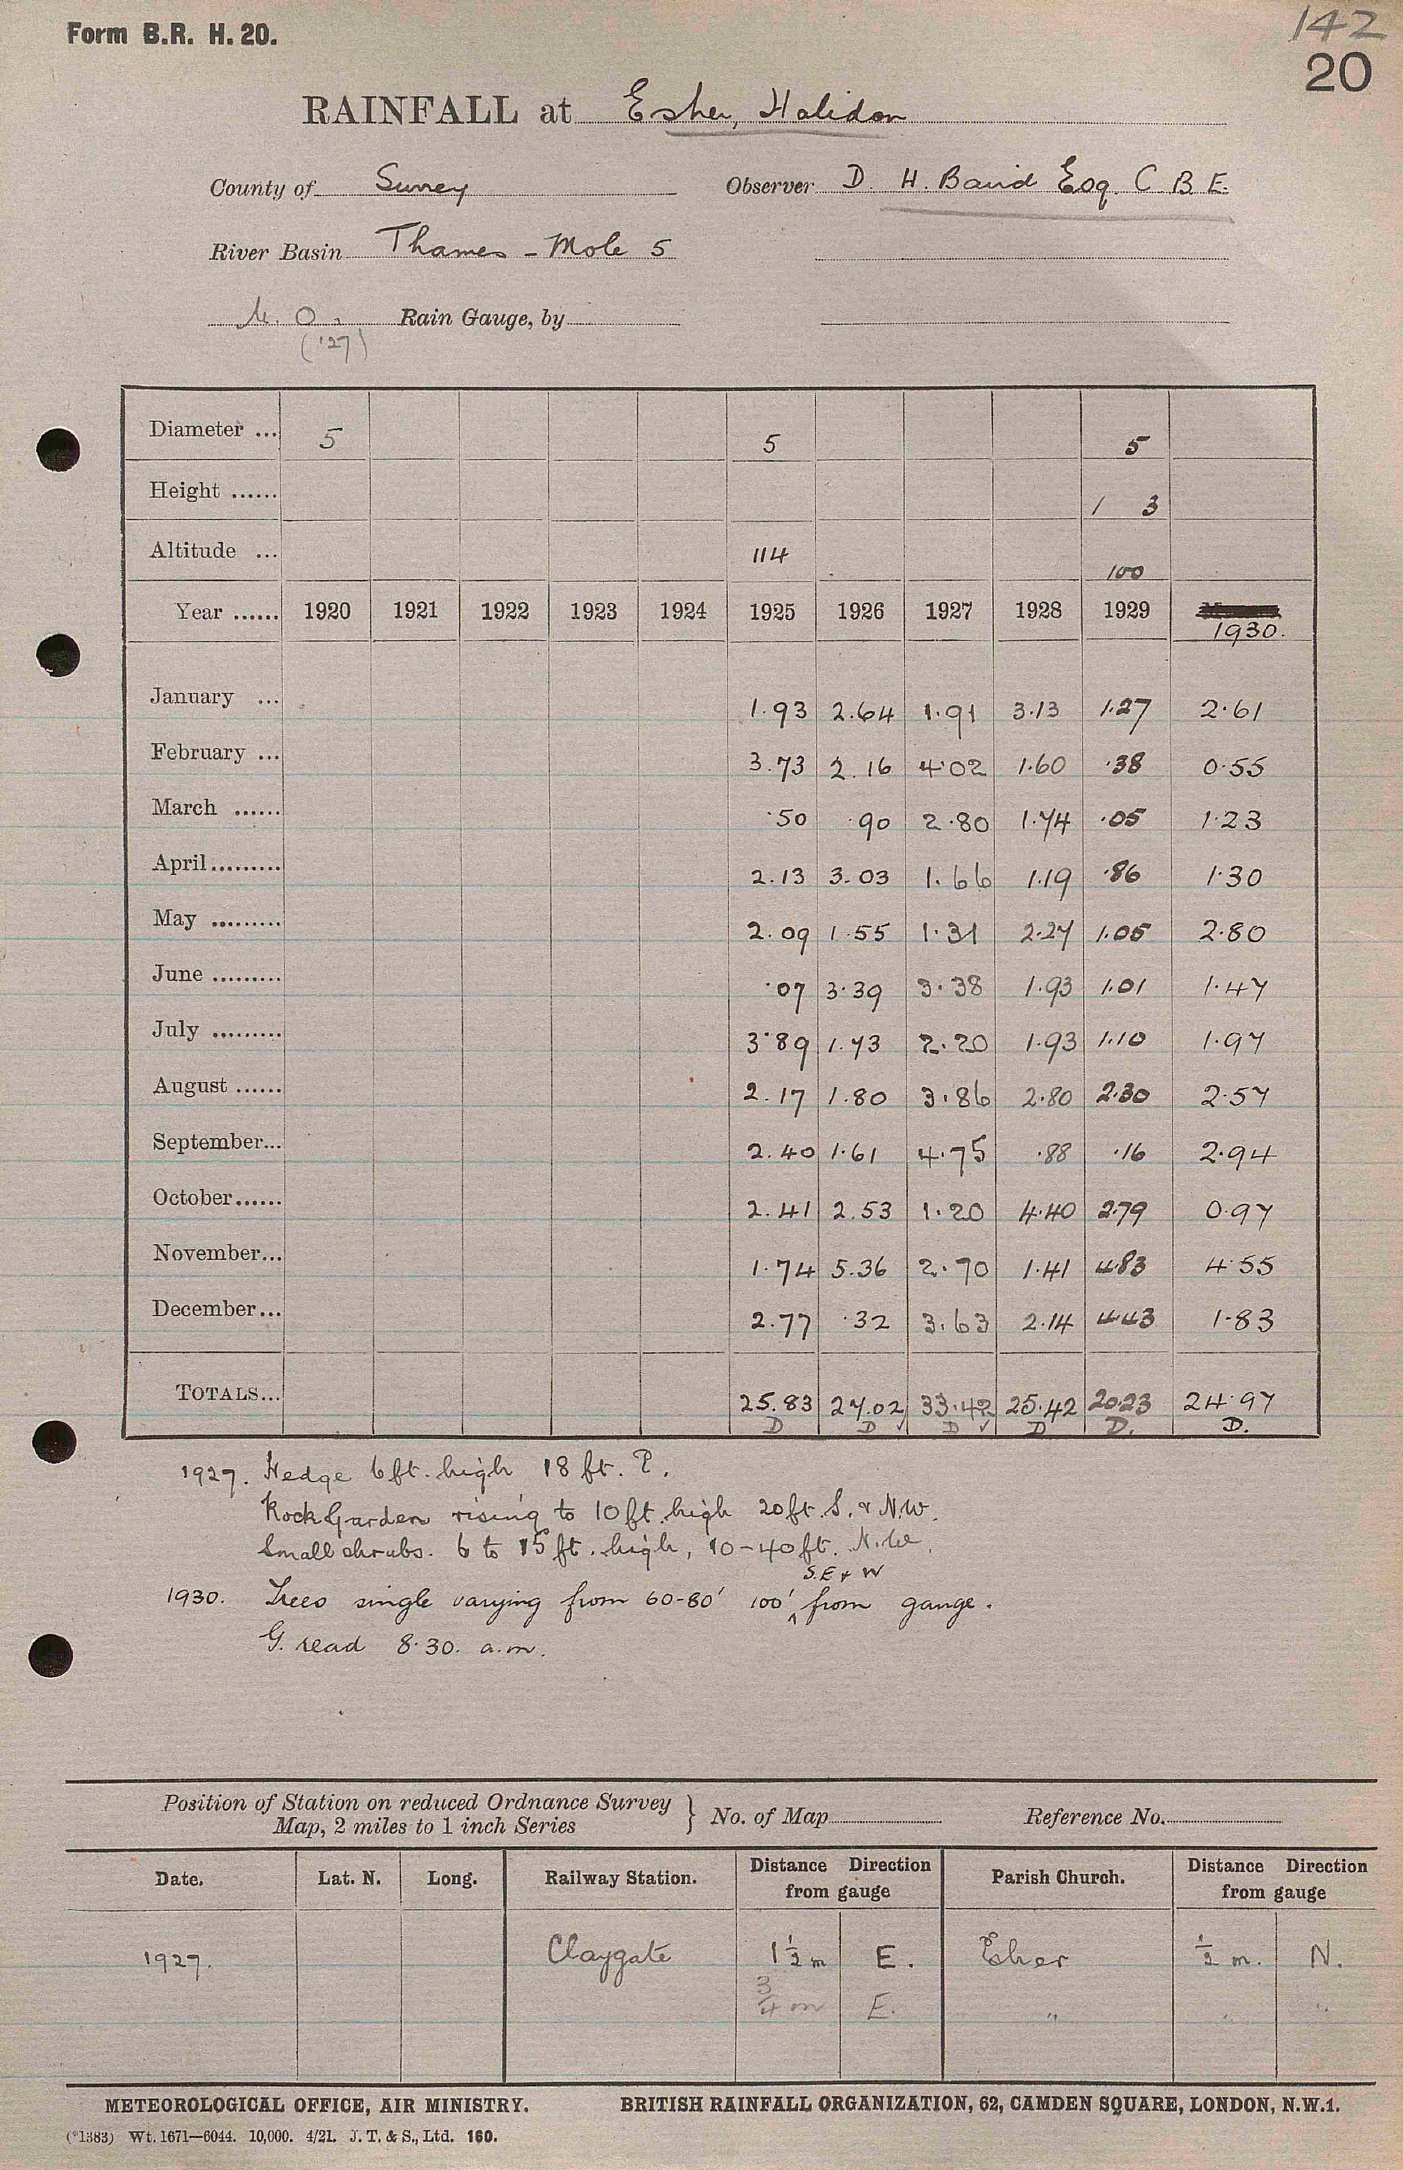 Form B.R. H. 20.
142
20
RAINFALL at Esher, Halidon
County of Surrey Observer D. H. Baird Esq. C B E.
River Basin Thames - Mole 5
M. O. Rain Gauge, by
('27)
Diameter ... 5 5 5
Height ...... 1 3
Altitude ... 114 100
Year ...... 1920 1921 1922 1923 1924 1925 1926 1927 1928 1929 1930.
January ... 1.93 2.64 1.91 3.13 1.27 2.61
February ... 3.73 2.16 4.02 1.60 .38 0.55
March ...... .50 .90 2.80 1.74 .05 1.23
April ......... 2.13 3.03 1.66 1.19 .86 1.30
May ......... 2.09 1.55 1.31 2.27 1.05 2.80
June ......... .07 3.39 3.38 1.93 1.01 1.47
July ......... 3.89 1.73 2.20 1.93 1.10 1.97
August ...... 2.17 1.80 3.86 2.80 2.30 2.57
September... 2.40 1.61 4.75 .88 .16 2.94
October...... 2.41 2.53 1.20 4.40 2.79 0.97
November... 1.74 5.36 2.70 1.41 4.83 4.55
December... 2.77 .32 3.63 2.14 4.43 1.83
TOTALS... 25.83 27.02 33.42 25.42 20.23 24.97
D D ✓ D ✓ D D. D.
1927. Hedge 6ft. high 18 ft. E.
Rock Garden rising to 10 ft. high 20 ft. S. & N.W.
Small shrubs. 6 to 15 ft. high, 10-40 ft. N.W.
S.E & W
1930. Trees single varying from 60-80' 100' ^ from gauge.
G. read 8.30. a.m.
Position of Station on reduced Ordnance Survey
Map, 2 miles to 1 inch Series } No. of Map Reference No.
Date. Lat. N. Long. Railway Station. Distance Direction from gauge Parish Church. Distance Direction from gauge
1927. Claygate 1½ m E. Esher ½ m. N.
¾ m E. " " "
METEOROLOGICAL OFFICE, AIR MINISTRY. BRITISH RAINFALL ORGANIZATION, 62, CAMDEN SQUARE, LONDON, N.W.1.
(*1383) Wt. 1671—6044. 10,000. 4/21. J. T. & S., Ltd. 160.